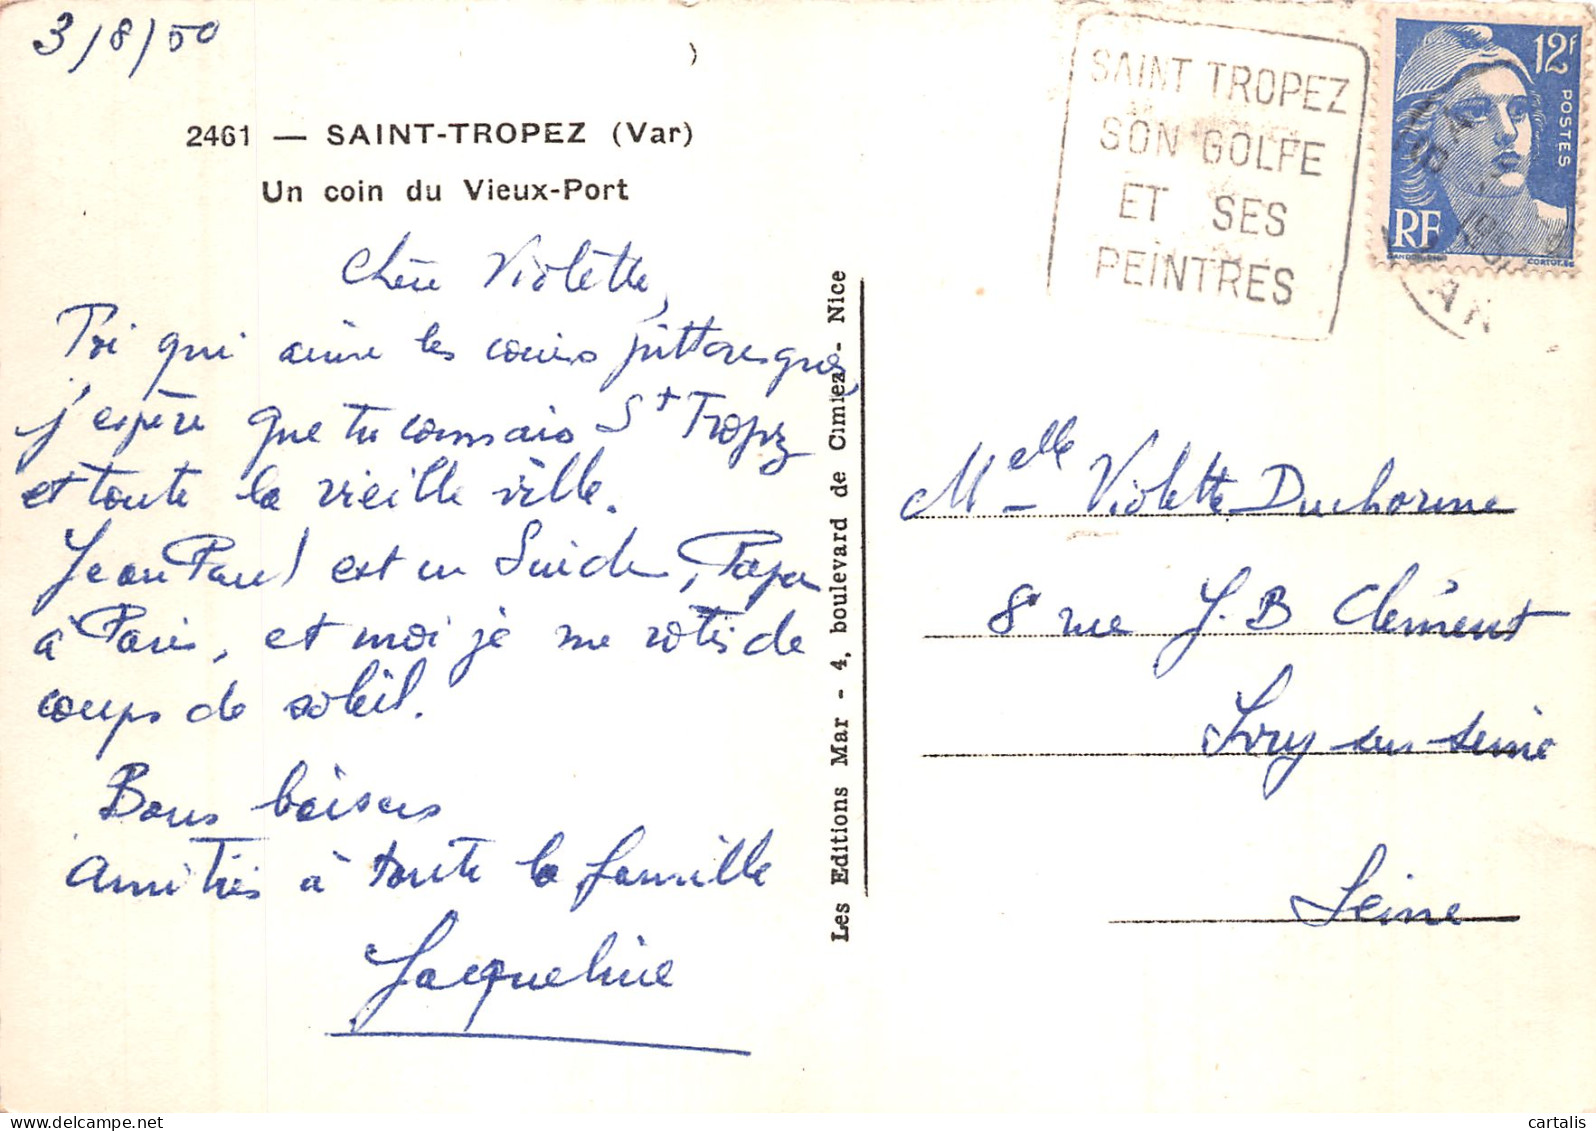 3/8/50
2461 — SAINT-TROPEZ (Var)
Un coin du Vieux-Port
Chère Violette,
Toi qui aime les coins pittoresques,
j'espère que tu connais St Tropez
et toute la vieille ville.
Jean Paul est en Suède, Papa
à Paris, et moi je me rotis de
coups de soleil.
Bons baisers
Amitiés à toute la famille
Jacqueline
Les Editions Mar - 4, boulevard de Cimiez - Nice
SAINT TROPEZ
SON GOLFE
ET SES
PEINTRES
12f
POSTES
RF
GANDON
CORTOT.SC
VAR
Melle Violette Duchorme
8 rue J.B Clément
Ivry sur Seine
Seine
cartalis
www.delcampe.net